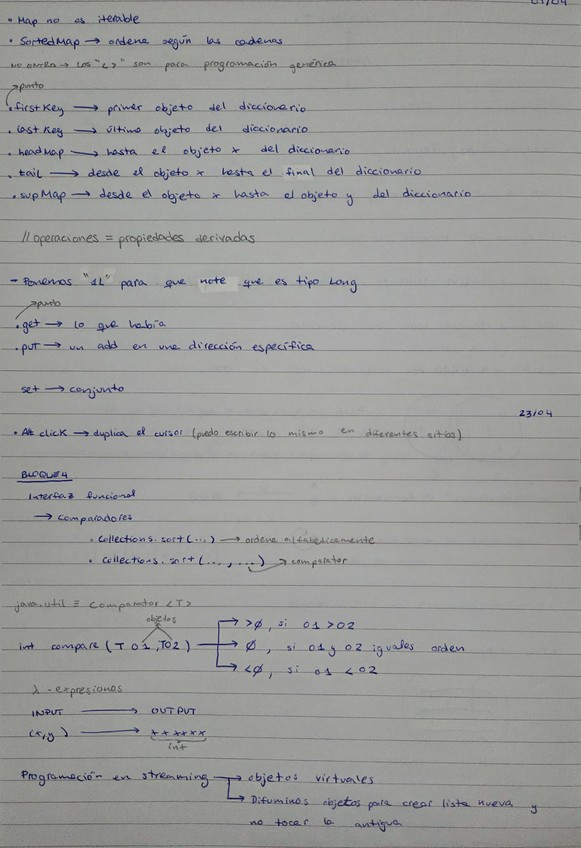 01/04
• Map no es iterable
• SortedMap → ordena según las cadenas
NO ENTRA → LOS "< >" son para programación genérica
→ punto
.firstKey → primer objeto del diccionario
.last Key → último objeto del diccionario
.headMap → hasta el objeto x del diccionario
.tail → desde el objeto x hasta el final del diccionario
.supMap → desde el objeto x hasta el objeto y del diccionario
// operaciones = propiedades derivadas
- Ponemos "1L" para que note que es tipo Long
→ punto
.get → lo que había
.put → un add en una dirección específica
set → conjunto
23/04
• Alt click → duplica el cursor (puedo escribir lo mismo en diferentes sitios)
BLOQUE 4
Interfaz funcional
→ comparadores
• Collections.sort(...) → ordena alfabéticamente
• Collections.sort(...,...) → comparator
java.util ≡ Comparator <T>
objetos
int compare (T O1, T O2) → >0, si O1 > O2
→ 0, si O1 y O2 iguales orden
→ <0, si O1 < O2
λ - expresiones
INPUT → OUTPUT
(x,y) → ******
int
Programación en streaming → objetos virtuales
→ Difumina objetos para crear lista nueva y
no tocar la antigua